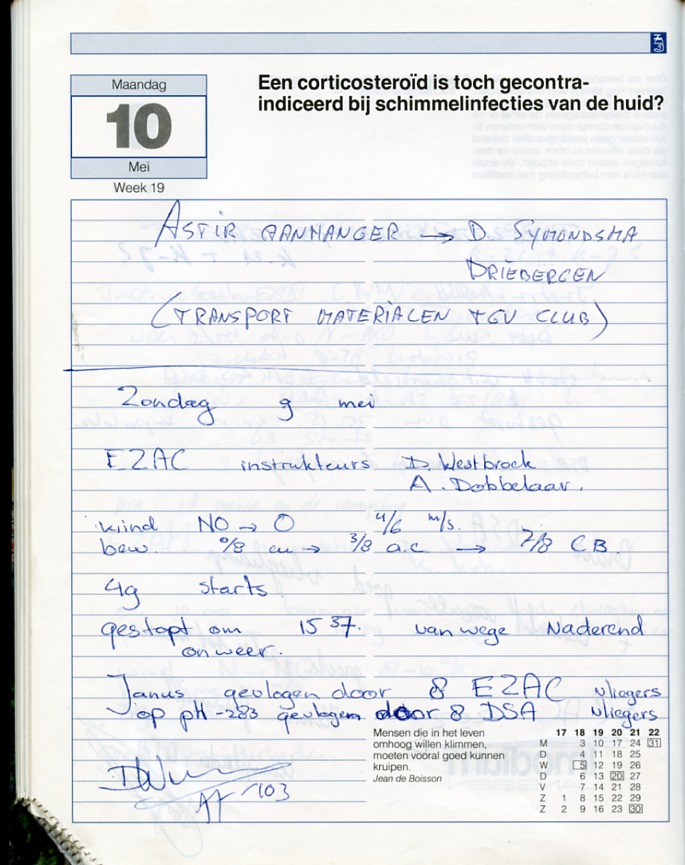 Maandag
10
Mei
Week 19
Een corticosteroïd is toch gecontra-
indiceerd bij schimmelinfecties van de huid?
ASTIR AANHANGER → D. SYMONDSMA
DRIEBERGEN
(TRANSPORT MATERIALEN TGV CLUB)
Zondag 9 mei
EZAC instrukteurs D. Westbroek
A. Dobbelaar.
wind NO → O 4/6 m/s.
bew. 0/8 cu → 3/8 a.c → 7/8 CB.
49 starts
gestopt om 15 37. van wege Naderend
onweer.
Janus gevlogen door 8 EZAC vliegers
op pH-283 gevlogen door 8 DSA vliegers
Mensen die in het leven
omhoog willen klimmen,
moeten vooral goed kunnen
kruipen.
Jean de Boisson
17 18 19 20 21 22
M 3 10 17 24 31
D 4 11 18 25
W 5 12 19 26
D 6 13 20 27
V 7 14 21 28
Z 1 8 15 22 29
Z 2 9 16 23 30
103